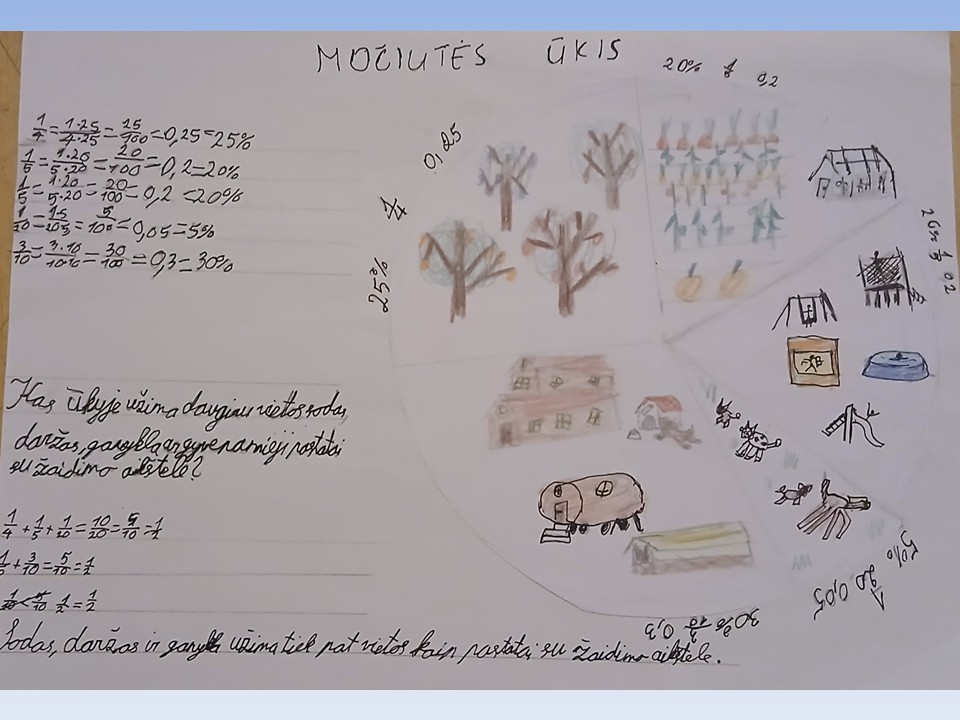 MOČIUTĖS ŪKIS
1/4 = 1·25/4·25 = 25/100 = 0,25 = 25%
1/5 = 1·20/5·20 = 20/100 = 0,2 = 20%
1/5 = 1·20/5·20 = 20/100 = 0,2 = 20%
= 5/100 = 0,05 = 5%
3/10 = 3·10/10·10 = 30/100 = 0,3 = 30%
Kas ūkyje užima daugiau vietos sodas,
daržas, ganykla ar gyvenamieji pastatai
su žaidimo aikštele?
1/4 + 1/5 + 1/20 = 10/20 = 5/10 = 1/2
+ 3/10 = 5/10 = 1/2
1/2 = 1/2
Sodas, daržas ir ganykla užima tiek pat vietos kaip pastatai su žaidimo aikštele.
25% 1/4 0,25
20% 1/5 0,2
20% 1/5 0,2
5% 1/20 0,05
30% 3/10 0,3